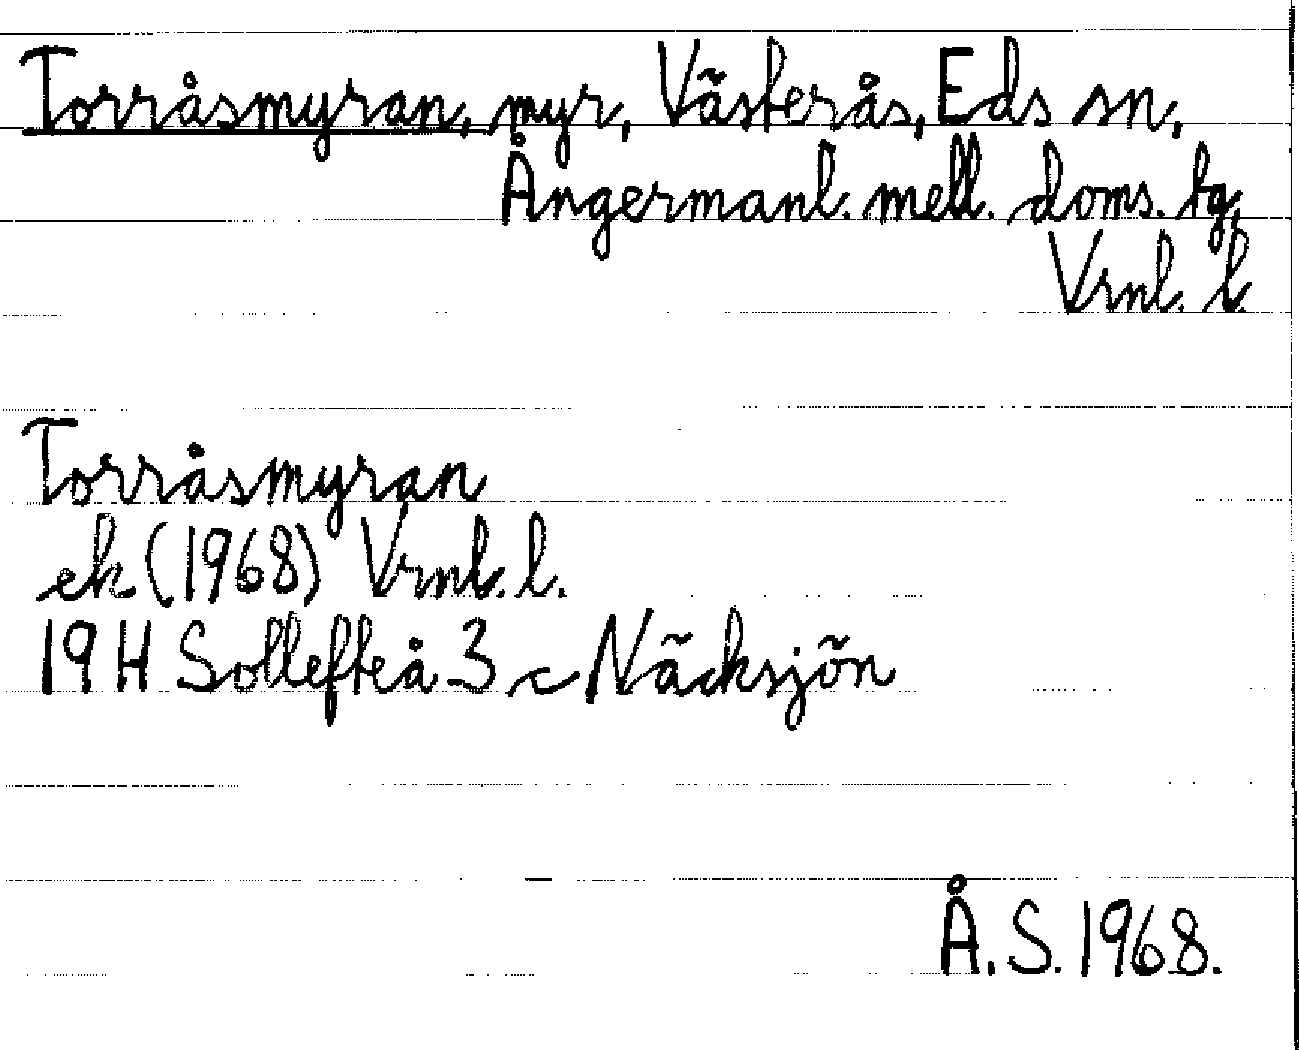 Torråsmyran, myr, Västerås, Eds sn,
Ångermanl. mell. doms. tg,
Vrnl. l.
Torråsmyran
ek (1968) Vrnl. l.
19 H Sollefteå 3 c Näcksjön
Å. S. 1968.